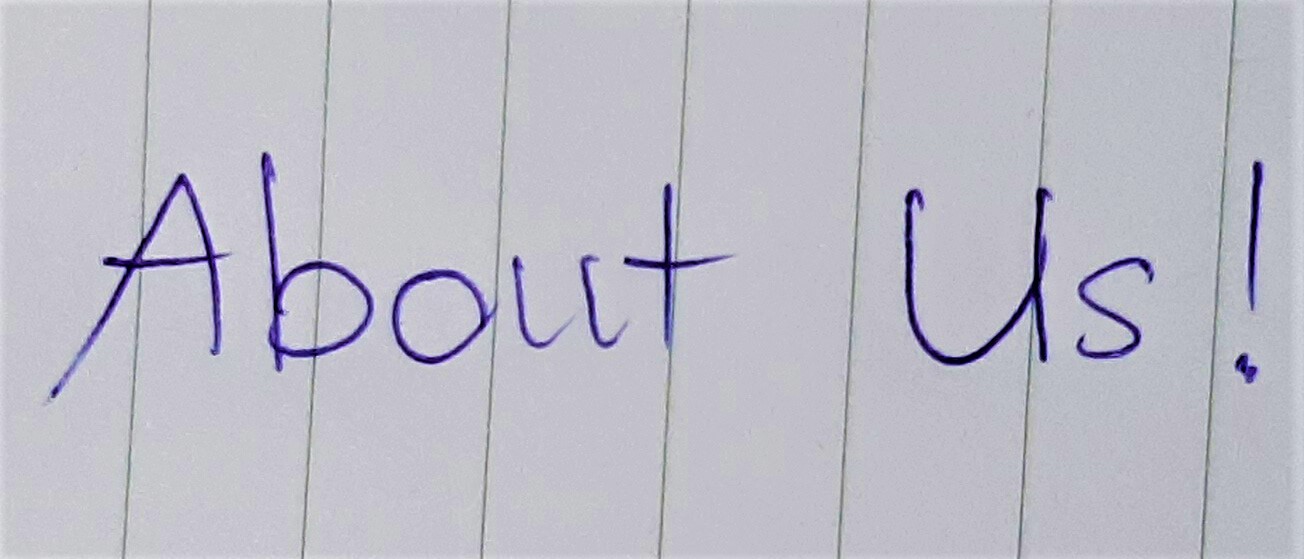 About Us!